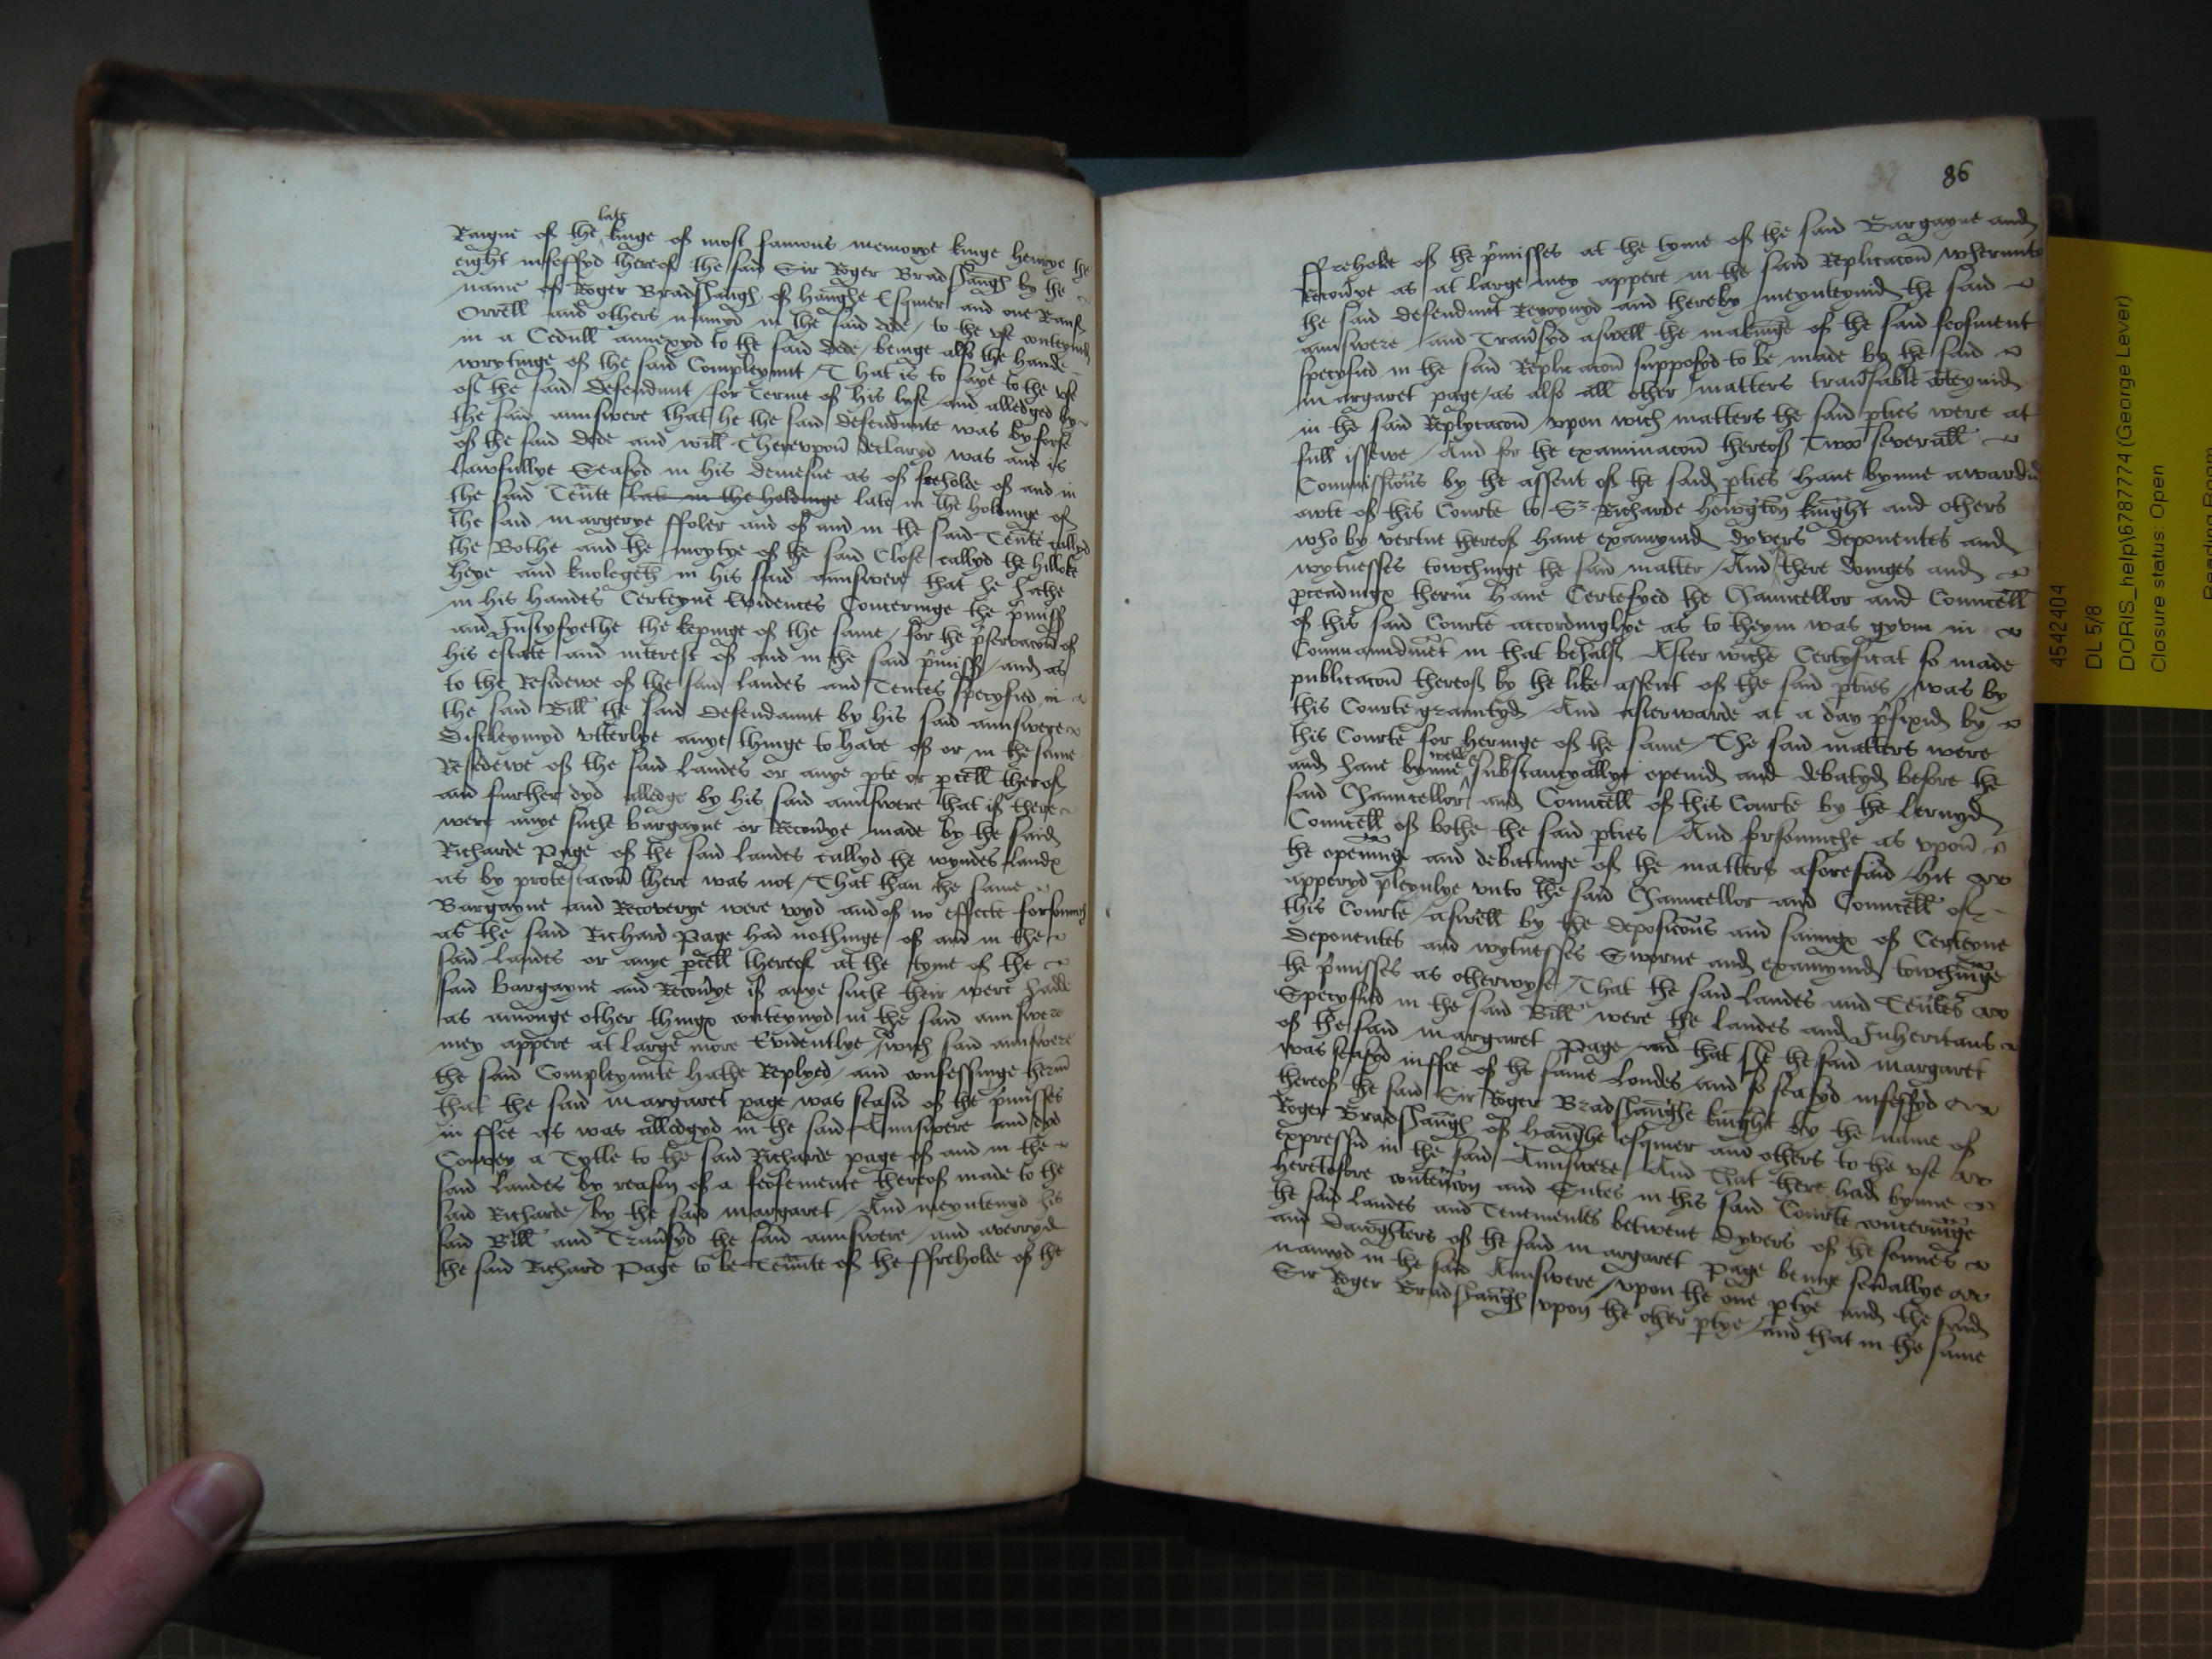 late
Raigne of the kinge of most famous memorye kinge henrye the
eight infeffyd thereof the said Sir Roger Bradshaugh by the
name of Roger Bradshaugh of haughe Esquier and one Rauff
Orrell and others namyd in the said dede / to the vse conteynid
in a Cedull annexyd to the said dede / beinge also the hande
wrytinge of the said Compleynnt / That is to saye to the vse
of the said defendunt / for terme of his lyfe / and alledged by
the said annswere that he the said defendunte was by force
of the said dede and will Therevpon declaryd was and is
lawfullye Seasyd in his demesne as of freholde of and in
the said Tente late in the holdinge late in the holdinge of
the said margerye ffoler and of and in the said Tente callyd
the Bothe and the moytye of the said Close callyd the hilloke
heye and knolegeth in his said annswere that he hathe
in his handes Certeyne Evidences Conceringe the pmiss
and Justyfyethe the kepinge of the same / for the pservacon of
his estate and interest of and in the said pmiss / and as
to the Residewe of the said landes and Tentes specyfied in
the said Bill the said defendannt by his said annswere
Discleymyd vtterlye anye thinge to have of or in the same
Resedewe of the said landes or anye pte or pcell therof
and further dyd alledge by his said annswere that if there
were anye suche bargayne or Recouye made by the said
Richarde Page of the said landes callyd the wyndes landx
as by protestacon there was not / That than the same
Bargayne and Recoverye were voyd and of no effecte forsomuch
as the said Richard Page had nothinge of and in the
said landes or anye pcell thereof at the tyme of the
said bargayne and Recouye if anye suche their were hadde
as amonge other thingx conteynyd in the said annswere
mey appere at large more Evidentlye / wich said annswere
the said Compleynnte hathe Replyed / and confessinge herin
that the said margaret page was seasid of the pmisses
in ffee as was alledgyd in the said Annswere and dyd
Convey a Tytle to the said Richarde page of and in the
said landes by reason of a feofemente thereof made to the
said Richarde / by the said margaret / And meyntenyd his
said Bill and Trausyd the said annswere / and averryd
the said Richard Page to be Tennte of the ffreholde of the
86
ffreholde of the pmisses at the tyme of the said Bargayne and
Recouye as at large mey appere in the said Replicacon wherunto
the said defendunt Reyoynyd and thereby meynteynid the said
annswere and Trausyd aswell the makinge of the said feofment
specyfied in the said Replicacon supposyd to be made by the said
margaret page / as also all other matters trausable conteynid
in the said Replycacon vpon wich matters the said pties were at
full issewe / And for the examinacon thereof Two severall
Commissions by the assent of the said pties have bynne awardid
owte of this Courte to Sr Richarde howghton knight and others
who by vertue thereof have examynid dyvers deponentes and
wytnesses towchinge the said matter / And there doinges and
pceadingx therin have Certefyed the Channcellor and Councell
of this said Courte accordinglye as to theym was gyvin in
Commanndment in that behalf After wiche Certyficat so made
publicacon thereof by the like assent of the said pties / was by
this Courte grauntyd / And afterwarde at a day pfixid by
this Courte for heringe of the same / The said matters were
well
and have bynne substancyallye openid and debatyd before the
said Channcellor and Councell of this Courte by the lernyd
Councell of bothe the said pties / And forsomuche as vpon
the openinge and debatinge of the matters aforesaid / hit
apperyd pleynlye vnto the said Channcellor and Councell of
this Courte / aswell by the deposicons and saiingx of Certeyne
deponentes and wytnesses Sworne and examynid towchinge
the pmisses as otherwyse / That the said landes and Tentes
Specyfied in the said Bill were the landes and Inheritans
of the said margaret Page and that she the said margaret
was seasyd in ffee of the same londes and so seasyd infeffyd
thereof the said Sir Roger Bradshaughe knight by the name of
Roger Bradshaugh of haughe esquier and others to the vse
expressid in the said Annswere / And that there had bynne
heretofore contencon and Sutes in this said Courte concerninge
the said landes and Tenementes betwene dyvers of the sonnes
and dawghters of the said margaret Page beinge seuallye
namyd in the said Annswere / vpon the one ptye and the said
Sir Roger Bradshaugh vpon the other ptye / and that in the same
4542404
DL 5/8
DORIS_help\6787774 (George Lever)
Closure status: Open
Reading Room